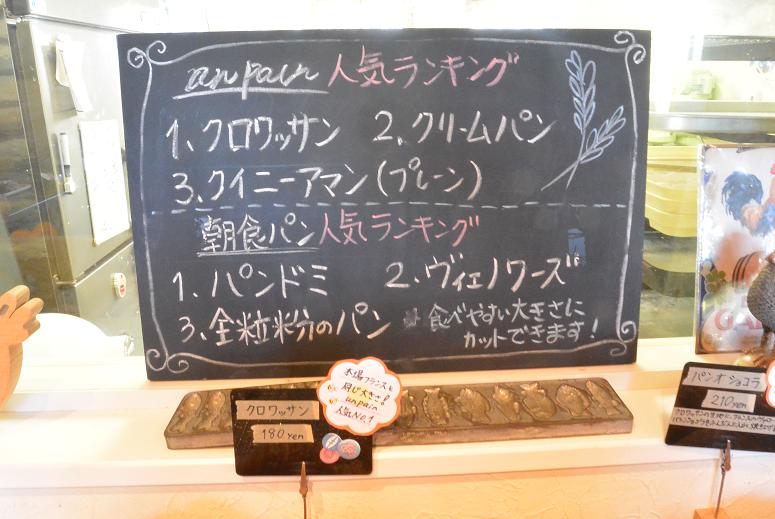 un pain 人気ランキング
1、クロワッサン 2、クリームパン
3、クイニーアマン(プレーン)
朝食パン人気ランキング
1、パンドミ 2、ヴィエノワーズ
3、全粒粉のパン
食べやすい大きさに
カットできます!
本場フランスと
同じ大きさ!
unpain
人気No.1
クロワッサン
180yen
パンオショコラ
210yen
クロワッサンの生地に